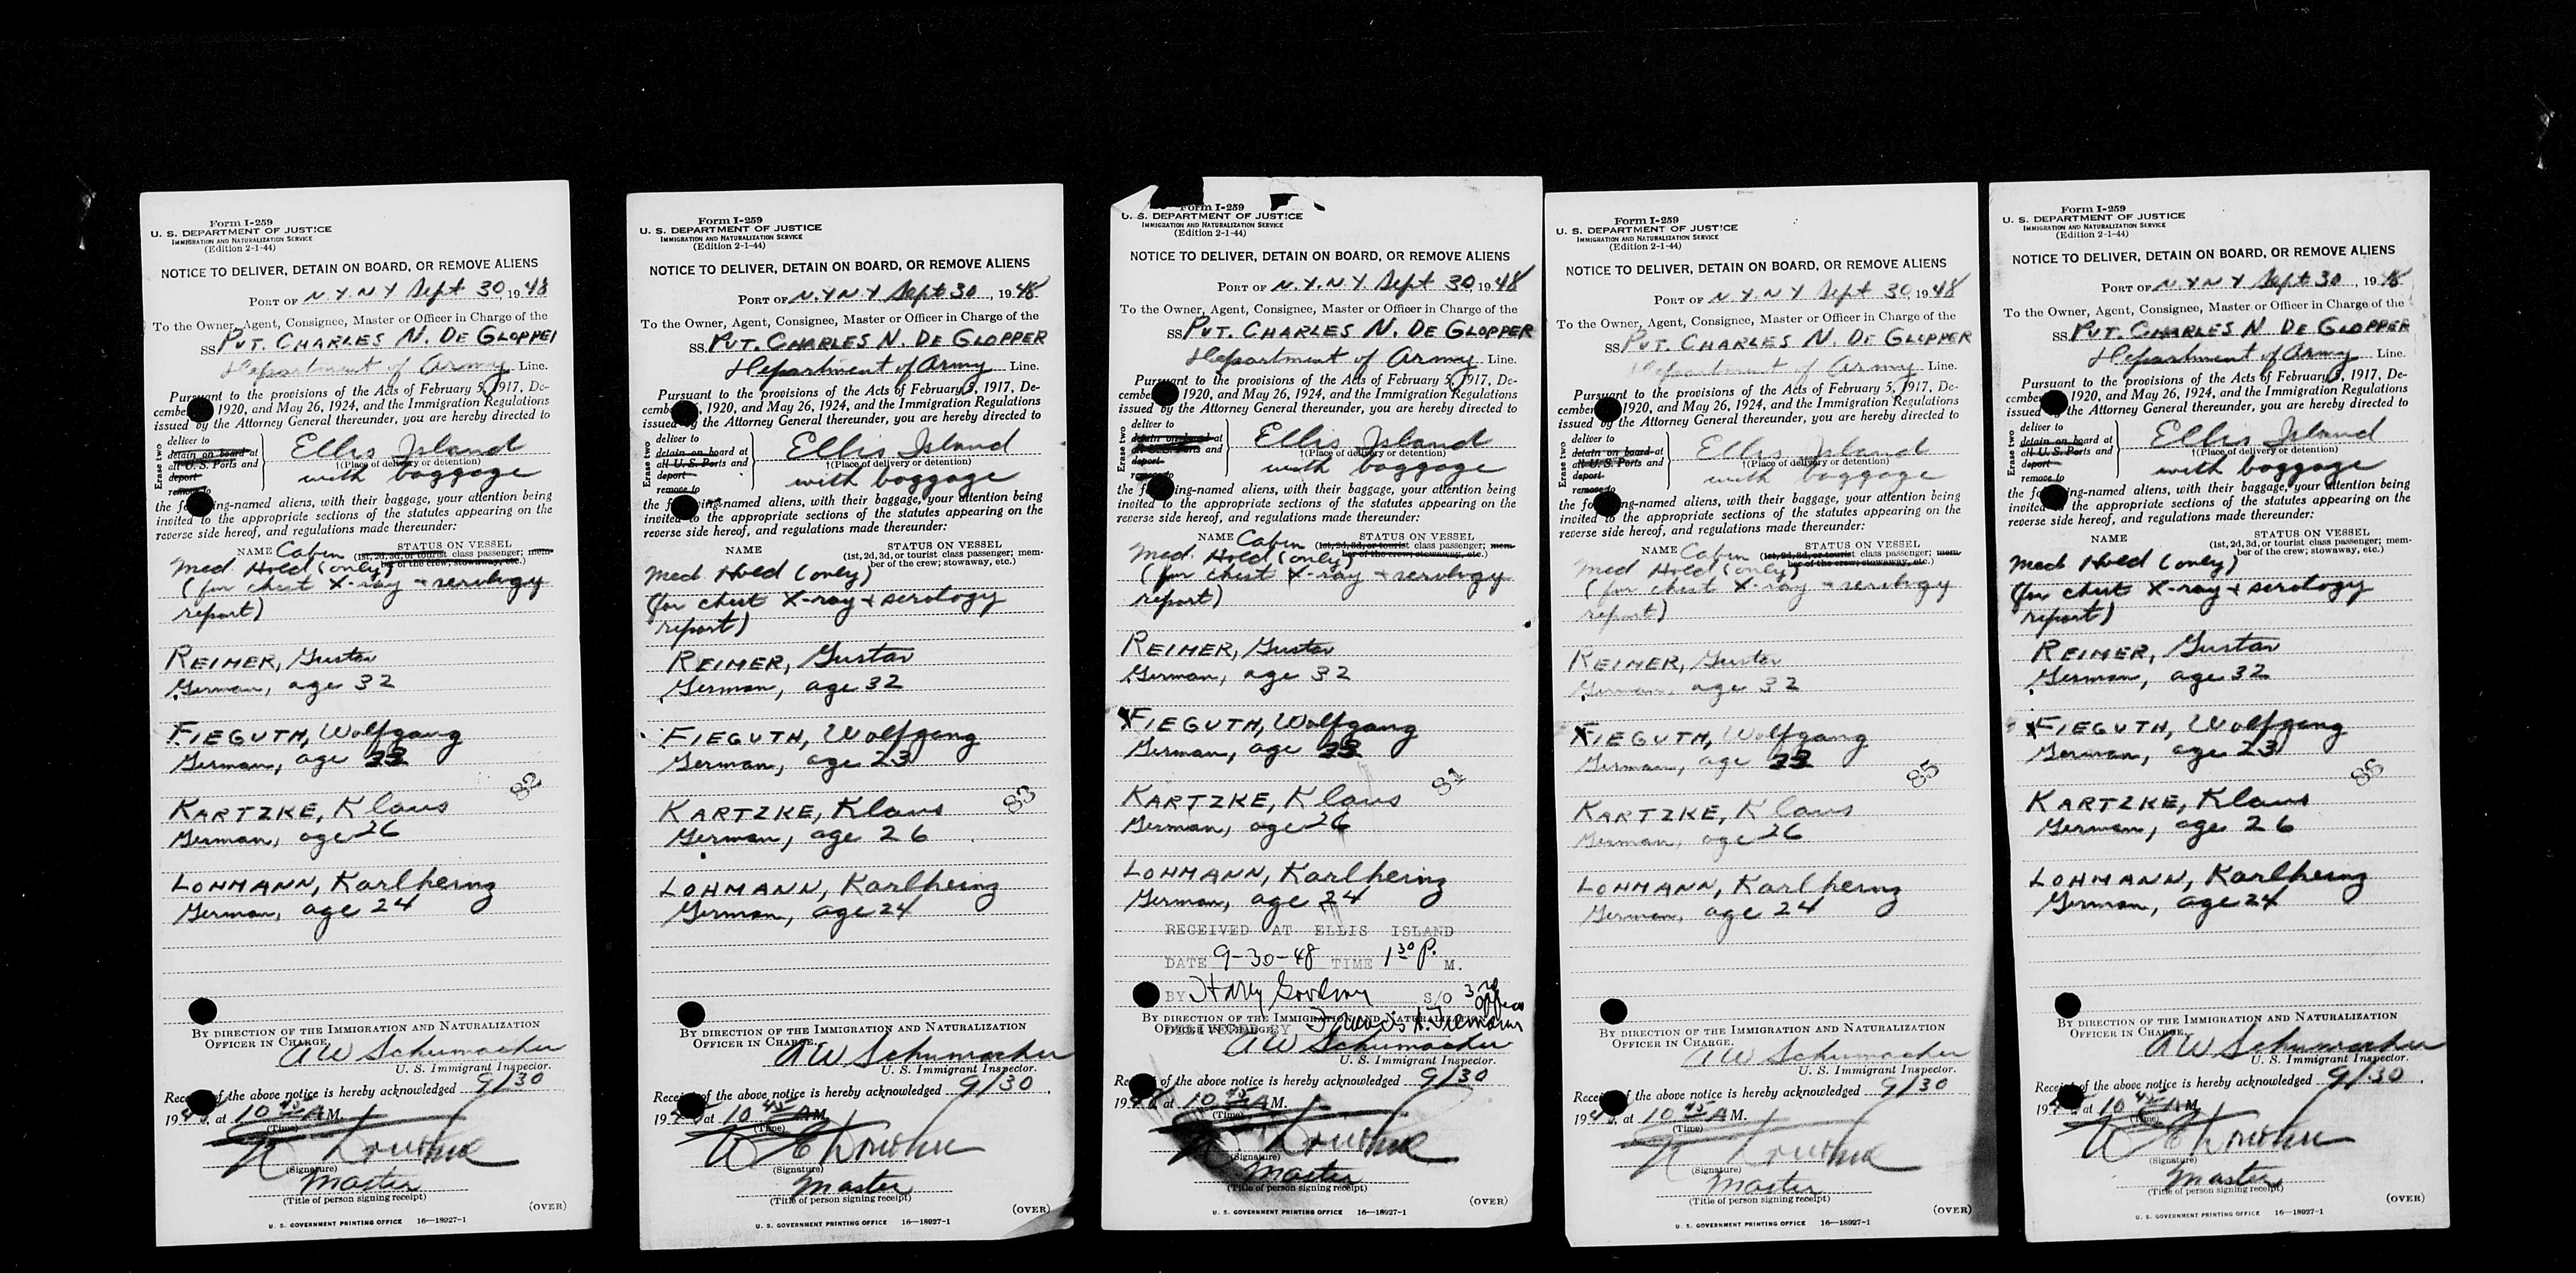 Form I-259
U. S. DEPARTMENT OF JUSTICE
IMMIGRATION AND NATURALIZATION SERVICE
(Edition 2-1-44)
NOTICE TO DELIVER, DETAIN ON BOARD, OR REMOVE ALIENS
PORT OF N.Y.N.Y Sept 30, 1948
To the Owner, Agent, Consignee, Master or Officer in Charge of the
SS PVT. CHARLES N. DE GLOPPE
Department of Army Line.
Pursuant to the provisions of the Acts of February 5, 1917, De-
cember 1920, and May 26, 1924, and the Immigration Regulations
issued by the Attorney General thereunder, you are hereby directed to
Erase two
deliver to
detain on board at
all U. S. Ports and
deport
remove to
Ellis Island
†(Place of delivery or detention)
with baggage
the following-named aliens, with their baggage, your attention being
invited to the appropriate sections of the statutes appearing on the
reverse side hereof, and regulations made thereunder:
NAME Cabin STATUS ON VESSEL
(1st, 2d, 3d, or tourist class passenger; mem-
ber of the crew; stowaway, etc.)
Med. Hold (only)
(for chest X-ray + serology
report)
REIMER, Gustav
German, age 32
FIEGUTH, Wolfgang
German, age 23
82
KARTZKE, Klaus
German, age 26
LOHMANN, Karlheinz
German, age 24
BY DIRECTION OF THE IMMIGRATION AND NATURALIZATION
OFFICER IN CHARGE.
AW Schumacher
U. S. Immigrant Inspector.
Receipt of the above notice is hereby acknowledged 9/30
1948, at 10 45 A M.
(Time)
(Signature)
Master
(Title of person signing receipt)
(OVER)
U. S. GOVERNMENT PRINTING OFFICE 16—18927-1
Form I-259
U. S. DEPARTMENT OF JUSTICE
IMMIGRATION AND NATURALIZATION SERVICE
(Edition 2-1-44)
NOTICE TO DELIVER, DETAIN ON BOARD, OR REMOVE ALIENS
PORT OF N.Y N.Y Sept 30, 1948
To the Owner, Agent, Consignee, Master or Officer in Charge of the
SS PVT. CHARLES N. DE GLOPPER
Department of Army Line.
Pursuant to the provisions of the Acts of February 5, 1917, De-
cember , 1920, and May 26, 1924, and the Immigration Regulations
issued by the Attorney General thereunder, you are hereby directed to
Erase two
deliver to
detain on board at
all U. S. Ports and
deport
remove to
Ellis Island
†(Place of delivery or detention)
with baggage
the following-named aliens, with their baggage, your attention being
invited to the appropriate sections of the statutes appearing on the
reverse side hereof, and regulations made thereunder:
NAME STATUS ON VESSEL
(1st, 2d, 3d, or tourist class passenger; mem-
ber of the crew; stowaway, etc.)
Med. Hold (only)
(for chest X-ray + serology
report)
REIMER, Gustav
German, age 32
FIEGUTH, Wolfgang
German, age 23
83
KARTZKE, Klaus
German, age 26
LOHMANN, Karlheinz
German, age 24
BY DIRECTION OF THE IMMIGRATION AND NATURALIZATION
OFFICER IN CHARGE.
AW Schumacher
U. S. Immigrant Inspector.
Receipt of the above notice is hereby acknowledged 9/30,
1948 at 10 45 A M.
(Time)
(Signature)
Master
(Title of person signing receipt)
(OVER)
U. S. GOVERNMENT PRINTING OFFICE 16—18927-1
Form I-259
U. S. DEPARTMENT OF JUSTICE
IMMIGRATION AND NATURALIZATION SERVICE
(Edition 2-1-44)
NOTICE TO DELIVER, DETAIN ON BOARD, OR REMOVE ALIENS
PORT OF N.Y.N.Y Sept 30, 1948
To the Owner, Agent, Consignee, Master or Officer in Charge of the
SS PVT. CHARLES N. DE GLOPPER
Department of Army Line.
Pursuant to the provisions of the Acts of February 5, 1917, De-
cember 1920, and May 26, 1924, and the Immigration Regulations
issued by the Attorney General thereunder, you are hereby directed to
Erase two
deliver to
detain on board at
all U. S. Ports and
deport
remove to
Ellis Island
†(Place of delivery or detention)
with baggage
the following-named aliens, with their baggage, your attention being
invited to the appropriate sections of the statutes appearing on the
reverse side hereof, and regulations made thereunder:
NAME Cabin STATUS ON VESSEL
(1st, 2d, 3d, or tourist class passenger; mem-
ber of the crew; stowaway, etc.)
Med. Hold (only)
(for chest X-ray + serology
report)
REIMER, Gustav
German, age 32
FIEGUTH, Wolfgang
German, age 23
84
KARTZKE, Klaus
German, age 26
LOHMANN, Karlheinz
German, age 24
RECEIVED AT ELLIS ISLAND
DATE 9-30-48 TIME 1 30 P. M.
BY Harry S/O 3rd Officer
BY DIRECTION OF THE IMMIGRATION AND NATURALIZATION
OFFICER IN CHARGE.
DELIVERED BY Francis
AW Schumacher
U. S. Immigrant Inspector.
Receipt of the above notice is hereby acknowledged 9/30
1948 at 10 45 A M.
(Time)
(Signature)
Master
(Title of person signing receipt)
(OVER)
U. S. GOVERNMENT PRINTING OFFICE 16—18927-1
Form I-259
U. S. DEPARTMENT OF JUSTICE
IMMIGRATION AND NATURALIZATION SERVICE
(Edition 2-1-44)
NOTICE TO DELIVER, DETAIN ON BOARD, OR REMOVE ALIENS
PORT OF N.Y.N Y Sept 30, 1948
To the Owner, Agent, Consignee, Master or Officer in Charge of the
SS PVT. CHARLES N. DE GLOPPER
Department of Army Line.
Pursuant to the provisions of the Acts of February 5, 1917, De-
cember 1920, and May 26, 1924, and the Immigration Regulations
issued by the Attorney General thereunder, you are hereby directed to
Erase two
deliver to
detain on board at
all U. S. Ports and
deport
remove to
Ellis Island
†(Place of delivery or detention)
with baggage
the following-named aliens, with their baggage, your attention being
invited to the appropriate sections of the statutes appearing on the
reverse side hereof, and regulations made thereunder:
NAME Cabin STATUS ON VESSEL
(1st, 2d, 3d, or tourist class passenger; mem-
ber of the crew; stowaway, etc.)
Med Hold (only)
(for chest X-ray + serology
report)
REIMER, Gustav
German, age 32
FIEGUTH, Wolfgang
German, age 23
85
KARTZKE, Klaus
German, age 26
LOHMANN, Karlheinz
German, age 24
BY DIRECTION OF THE IMMIGRATION AND NATURALIZATION
OFFICER IN CHARGE.
AW Schumacher
U. S. Immigrant Inspector.
Receipt of the above notice is hereby acknowledged 9/30
1948, at 10 45 A M.
(Time)
(Signature)
Master
(Title of person signing receipt)
(OVER)
U. S. GOVERNMENT PRINTING OFFICE 16—18927-1
Form I-259
U. S. DEPARTMENT OF JUSTICE
IMMIGRATION AND NATURALIZATION SERVICE
(Edition 2-1-44)
NOTICE TO DELIVER, DETAIN ON BOARD, OR REMOVE ALIENS
PORT OF N.Y N Y Sept 30, 1948
To the Owner, Agent, Consignee, Master or Officer in Charge of the
SS PVT. CHARLES N. DE GLOPPER
Department of Army Line.
Pursuant to the provisions of the Acts of February 5, 1917, De-
cember 1920, and May 26, 1924, and the Immigration Regulations
issued by the Attorney General thereunder, you are hereby directed to
Erase two
deliver to
detain on board at
all U. S. Ports and
deport
remove to
Ellis Island
†(Place of delivery or detention)
with baggage
the following-named aliens, with their baggage, your attention being
invited to the appropriate sections of the statutes appearing on the
reverse side hereof, and regulations made thereunder:
NAME STATUS ON VESSEL
(1st, 2d, 3d, or tourist class passenger; mem-
ber of the crew; stowaway, etc.)
Med Hold (only)
(for chest X-ray + serology
report)
REIMER, Gustav
German, age 32
FIEGUTH, Wolfgang
German, age 23
86
KARTZKE, Klaus
German, age 26
LOHMANN, Karlheinz
German, age 24
BY DIRECTION OF THE IMMIGRATION AND NATURALIZATION
OFFICER IN CHARGE.
AW Schumacher
U. S. Immigrant Inspector.
Receipt of the above notice is hereby acknowledged 9/30,
1948 at 10 45 A M.
(Time)
(Signature)
Master
(Title of person signing receipt)
(OVER)
U. S. GOVERNMENT PRINTING OFFICE 16—18927-1